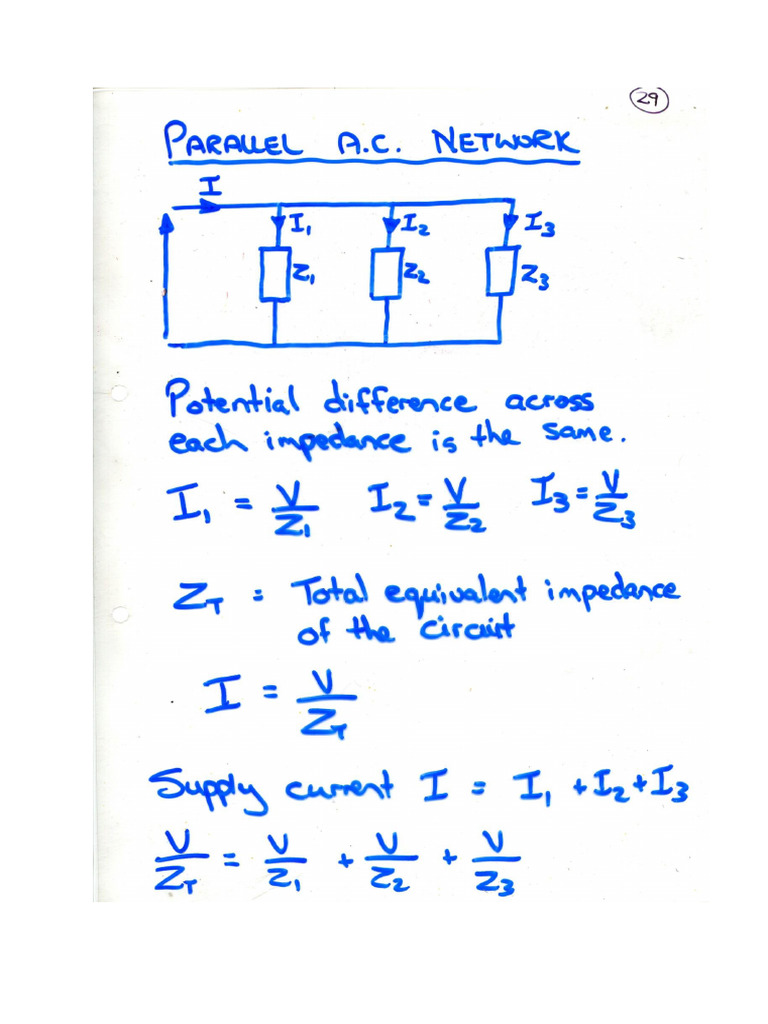 29
PARALLEL A.C. NETWORK
I
I₁ I₂ I₃
Z₁ Z₂ Z₃
Potential difference across
each impedance is the same.
I₁ = V/Z₁ I₂ = V/Z₂ I₃ = V/Z₃
Z_T = Total equivalent impedance
of the circuit
I = V/Z_T
Supply current I = I₁ + I₂ + I₃
V/Z_T = V/Z₁ + V/Z₂ + V/Z₃